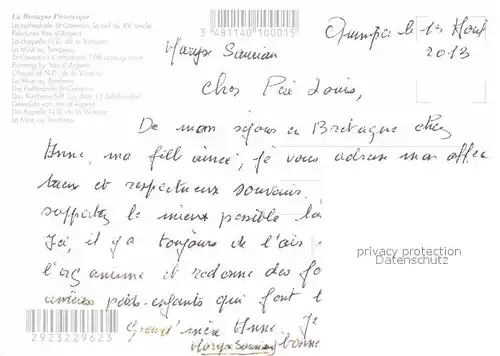 La Bretagne Pittoresque
La cathédrale St-Corentin, la nef du XVe siècle
Peintures Yan d'Argent
La chapelle N.D. de la Victoire
La Mise au Tombeau
St-Corentin's Cathedral 15th century nave
Painting by Yan d'Argent
Chapel of N.D. de la Victoire
La Mise au Tombeau
Die Kathedrale St-Corentin
Das Kirchenschiff aus dem 15. Jahrhundert
Gemälde von Yan d'Argent
Die Kapelle N.D. de la Victoire
La Mise au Tombeau
3 481140 100015
Quimper le 1er Août
2013
Maryse
Cher Père Louis,
De mon séjour en Bretagne chez
Anne, ma fille aînée, je vous adresse mon affec
tueux et respectueux souvenir.
supportez le mieux possible la
Ici, il y a toujours de l'air
et redonne des fo
petits-enfants qui font
Grand'mère Anne. Je
Maryse bonne
2923229623
privacy protection
Datenschutz